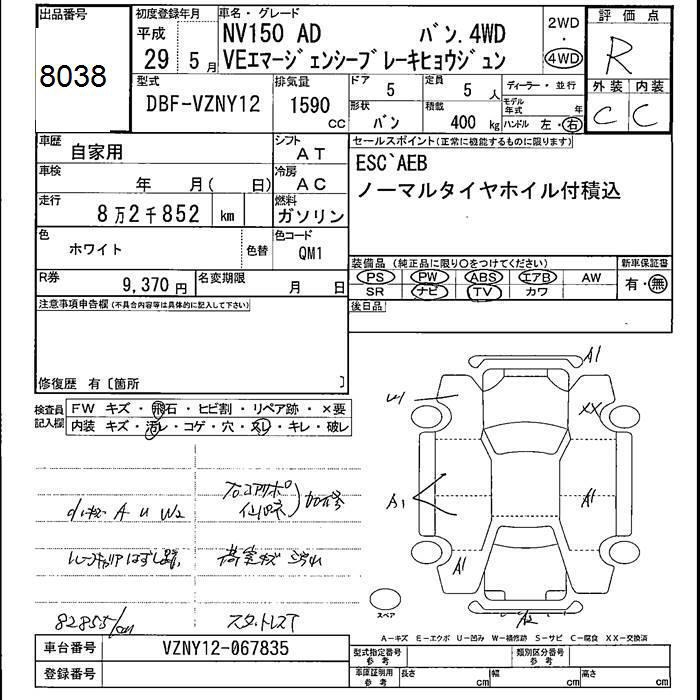 出品番号
8038
初度登録年月
平成
29 5 月
車名・グレード
NV150 AD バン.4WD
VEエマージェンシーブレーキヒョウジュン
2WD
・
4WD
評価点
R
外装 内装
C C
型式
DBF-VZNY12
排気量
1590
CC
ドア
5
定員
5 人
形状
バン
積載
400 kg
ディーラー・並行
モデル年式 年
ハンドル 左・右
車歴
自家用
シフト
AT
車検
年 月( 日)
冷房
AC
走行
8万2千852 km
燃料
ガソリン
色
ホワイト
色替
色コード
QM1
R券
9,370 円
名変期限
月 日
セールスポイント(正常に機能するものに限ります)
ESC`AEB
ノーマルタイヤホイル付積込
装備品(純正品に限り○をつけてください)
PS PW ABS エアB AW
SR ナビ TV カワ
新車保証書
有・無
後日品
注意事項申告欄(不具合内容等は具体的に記入して下さい)
修復歴 有〔箇所 〕
検査員記入欄
FW キズ・飛石・ヒビ割・リペア跡・×要
内装 キズ・汚レ・コゲ・穴・スレ・キレ・破レ
A U W2
82855/km
スタットレスT
A1
U1
XX
A1
A1
A1
スペア
A2
A-キズ E-エクボ U-凹み W-補修跡 S-サビ C-腐食 XX-交換済
車台番号
VZNY12-067835
登録番号
型式指定番号
参考
類別区分番号
参考
車庫証明用
参考
長さ cm
幅 cm
高さ cm